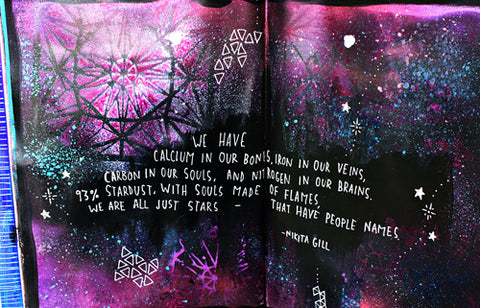 WE HAVE
CALCIUM IN OUR BONES, IRON IN OUR VEINS,
CARBON IN OUR SOULS, AND NITROGEN IN OUR BRAINS.
93% STARDUST, WITH SOULS MADE OF FLAMES,
WE ARE ALL JUST STARS - THAT HAVE PEOPLE NAMES.
-NIKITA GILL